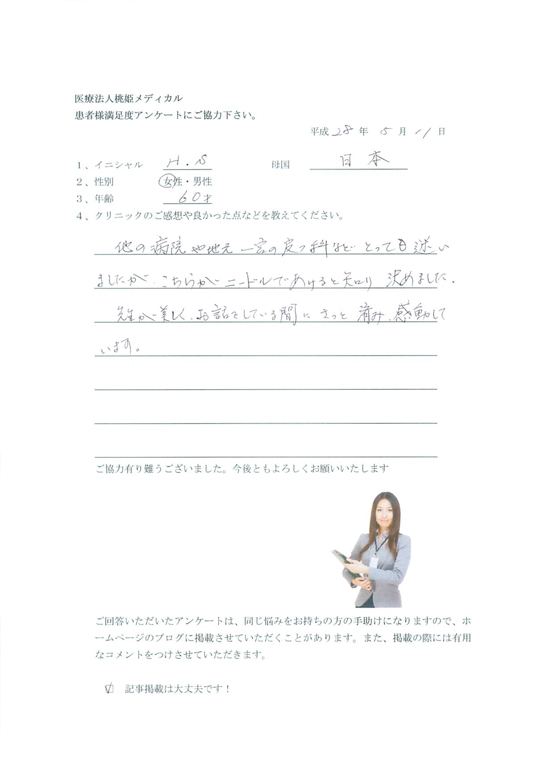 医療法人桃姫メディカル
患者様満足度アンケートにご協力下さい。
平成 28 年 5 月 11 日
1、イニシャル H.S 母国 日本
2、性別 女性・男性
3、年齢 60才
4、クリニックのご感想や良かった点などを教えてください。
他の病院や地元 の皮フ科など とっても迷い
ましたが、こちらがニードルであけると知り 決めました。
先生が美しく、お話をしている間に さっと 済み、感動して
います。
ご協力有り難うございました。今後ともよろしくお願いいたします
ご回答いただいたアンケートは、同じ悩みをお持ちの方の手助けになりますので、ホ
ームページのブログに掲載させていただくことがあります。また、掲載の際には有用
なコメントをつけさせていただきます。
☑ 記事掲載は大丈夫です！